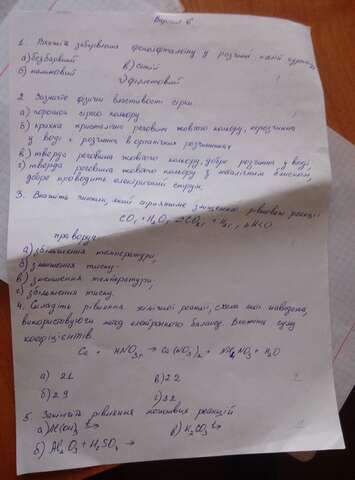 Варіант 6
1. Вкажіть забарвлення фенолфталеїну у розчині калій
а) безбарвний в) синій
б) малиновий г) фіолетовий
2. Зазначте фізичні властивості сірки
а) порошок сірого кольору
б) крихка кристалічна речовина жовтого кольору, нерозчинна
у воді і розчинна в органічних розчинниках
в) тверда речовина жовтого кольору, добре розчинна у воді
г) тверда речовина жовтого кольору з металічним блиском,
добре проводить електричний струм.
3. Вкажіть чинник, який сприятиме зміщенню рівноваги реакції
праворуч
а) збільшення температури,
б) зниження тиску.
в) зменшення температури,
г) збільшення тиску.
4. Складіть рівняння хімічної реакції, схема якої наведена,
використовуючи метод електронного балансу. Вкажіть суму
коефіцієнтів.
Ca + HNO₃ → Ca(NO₃)₂ + NH₄NO₃ + H₂O
а) 21 в) 22
б) 29 г) 32
5. Закінчіть рівняння можливих реакцій
а) Al(OH)₃ t→ в) K₂CO₃ t→
б) Al₂O₃ + H₂SO₄ →